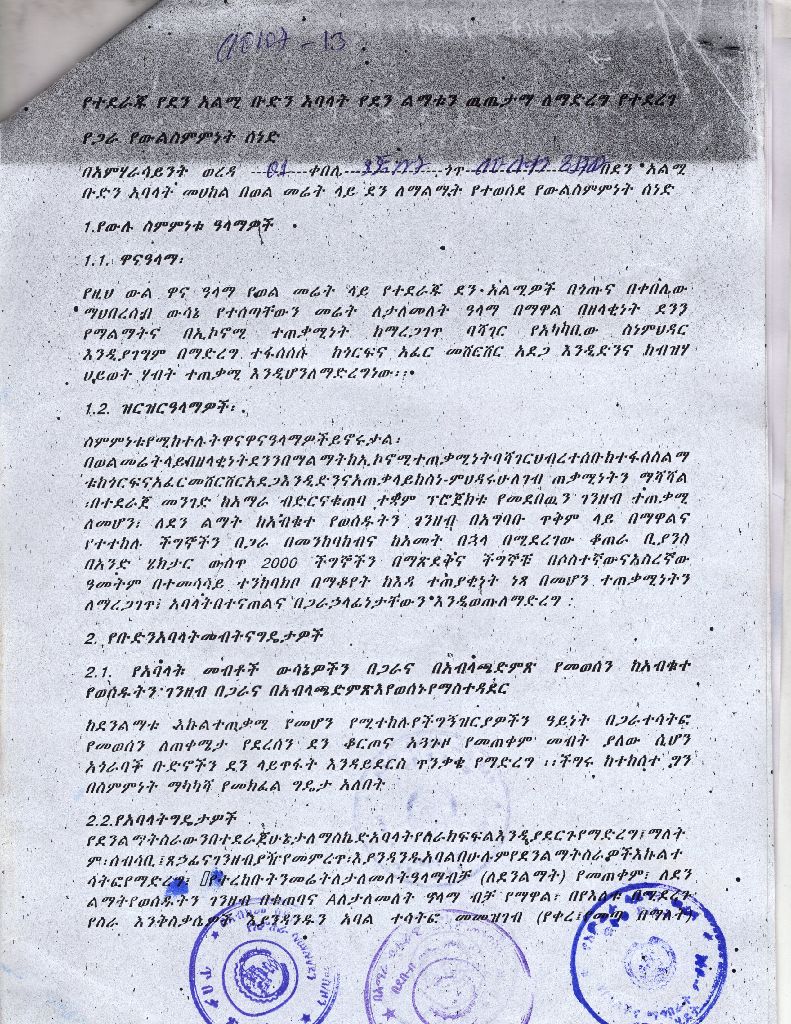 የተደራጁ የደን አልሚ ቡድን አባላት የደን ልማቱን ዉጤታማ ለማድረግ የተደረገ
የጋራ የውልስምምነት ሰነድ
በአምሃራሳይንት ወረዳ 01 ቀበሌ ጎጥ በደን አልሚ
ቡድን አባላት መሀከል በወል መሬት ላይ ደን ለማልማት የተወሰደ የውልስምምነት ሰነድ
1.የውሉ ስምምነቱ ዓላማዎች
1.1. ዋናዓላማ፡
የዚህ ውል ዋና ዓላማ የወል መሬት ላይ የተደራጁ ደን አልሚዎች በጎጡና በቀበሌው
ማህበረሰብ ውሳኔ የተሰጣቸውን መሬት ለታለመለት ዓላማ በማዋል በዘላቂነት ደንን
የማልማትና በኢኮኖሚ ተጠቃሚነት ከማረጋገጥ ባሻገር የአካከቢው ስነምህዳር
እንዲያገግም በማድረግ ተፋሰሱ ከጎርፍና አፈር መሸርሸር አደጋ እንዲድንና ከብዝሃ
ህይወት ሃብት ተጠቃሚ እንዲሆንለማድረግነው፡፡
1.2. ዝርዝርዓላማዎች፡
ስምምነቱየሚከተሉትዋናዋናዓላማዎችይኖሩታል፡
በወልመሬትላይበዘላቂነትደንንበማልማትከኢኮኖሚተጠቃሚነትባሻገርህብረተሰቡከተፋሰስልማ
ቱከጎርፍናአፈርመሸርሸርአደጋእንዲድንናአጠቃላይከስነ-ምህዳሩሁለገብ ጠቃሚነትን ማሻሻል
፡በተደራጀ መንገድ ከአማራ ብድርናቁጠባ ተቋም ፕሮጀክቱ የመደበዉን ገንዘብ ተጠቃሚ
ለመሆን፤ ለደን ልማት ከአብቁተ የወሰዱትን ገንዘብ በአግባቡ ጥቅም ላይ በማዋልና
የተተከሉ ችግኞችን በጋራ በመንከባከብና ከአመት በኋላ በሚደረገው ቆጠራ ቢያንስ
በአንድ ሄክታር ውስጥ 2000 ችግኞችን በማጽደቅና ችግኞቹ በሶስተኛውናአስረኛው
ዓመትም በተመሳሳይ ተንከባክቦ በማቆየት ከእዳ ተጠያቂነት ነጻ በመሆን ተጠቃሚነትን
ለማረጋገጥ፤ አባላትበተናጠልና በጋራኃላፊነታቸውንእንዲወጡለማድረግ ፡
2. የቡድንአባላትመብትናግዴታዎች
2.1. የአባላት መብቶች ውሳኔዎችን በጋራና በአብላጫድምጽ የመወሰን ከአብቁተ
የወሰዱትን ገንዘብ በጋራና በአብላጫድምጽእየወሰኑየማስተዳደር
ከደንልማቱ እኩልተጠቃሚ የመሆን የሚተከሉየችግኝዝርያዎችን ዓይነት በጋራተሳትፎ
የመወሰን ለጠቀሜታ የደረሰን ደን ቆርጦና አጓጉዞ የመጠቀም መብት ያለው ሲሆን
አጎራባች ቡድኖችን ደን ላይጥፋት እንዳይደርስ ጥንቃቄ የማድረግ ፡፡ችግሩ ከተከሰተ ግን
በስምምነት ማካካሻ የመክፈል ግዴታ አለበት
2.2.የአባላትግዴታዎች
የደንልማትስራውንበተደራጀሁኔታለማስኬድአባላትየስራክፍፍልእንዲያደርጉየማድረግ፤ማለት
ም፡ሰብሳቢ፤ጸኃፊናገንዘብያዥየመምረጥ፡እያንዳንዱአባልበሁሉምየደንልማትስራዎችእኩልተ
ሳትፎየማድረግ፤ የተረከቡትንመሬትለታለመለትዓላማብቻ (ለደንልማት) የመጠቀም፤ ለደን
ልማትየወሰዱትን ገንዘብ በቁጠባና Aለታለመለት ዋላማ ብቻ የማዋል፣ በየእለቱ በሚደረግ
የስራ እንቅስቃሴዎች እያንዳንዱን አባል ተሳትፎ መመዝገብ (የቀረ፤የመጣ በማለት)፣